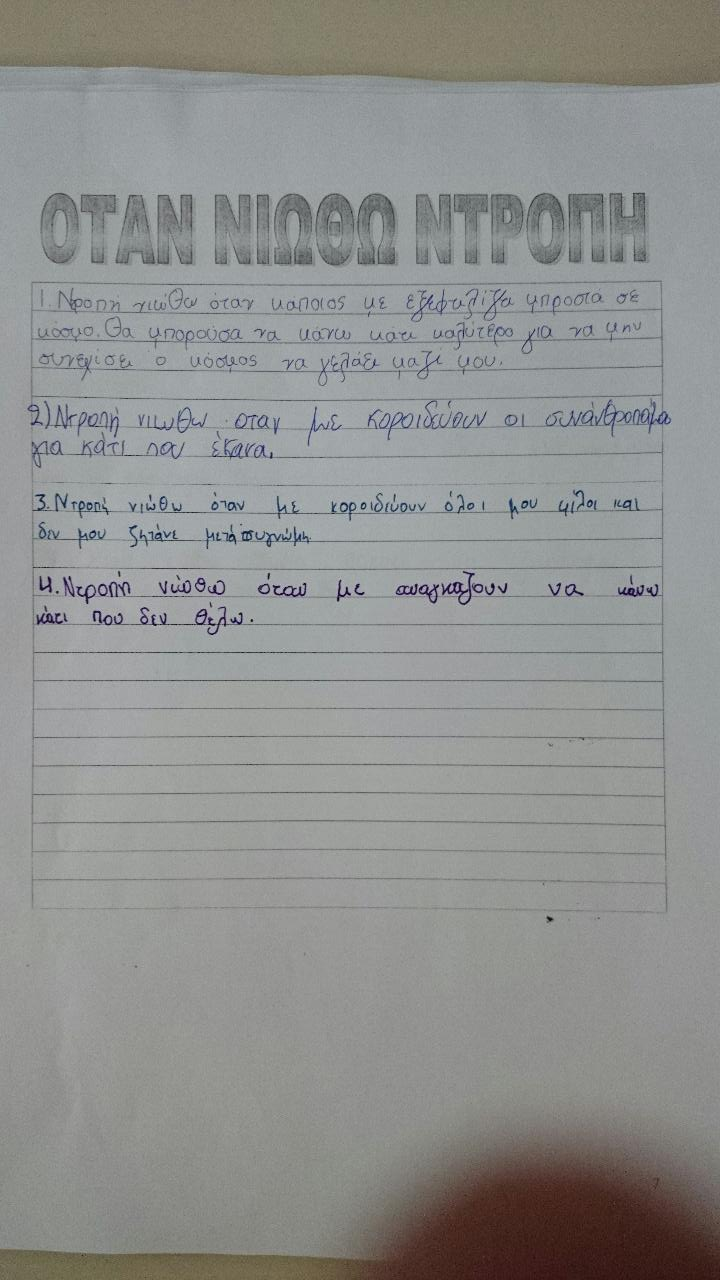 ΟΤΑΝ ΝΙΩΘΩ ΝΤΡΟΠΗ
1. Νροπή νιώθω όταν κάποιος με εξεφαλίζα μπροστά σε
κόσμο. Θα μπορούσα να κάνω κάτι καλύτερο για να μην
συνεχίσει ο κόσμος να γελάει μαζί μου.
2) Ντροπή νιωθω οταν με κοροιδεύουν οι συνάνθροποί μου
για κάτι που έκανα.
3. Ντροπή νιώθω όταν με κοροιδεύουν όλοι μου φίλοι και
δεν μου ζητάνε μετά συγνώμη
4. Ντροπή νιώθω όταν με αναγκάζουν να κάνω
κάτι που δεν θέλω.